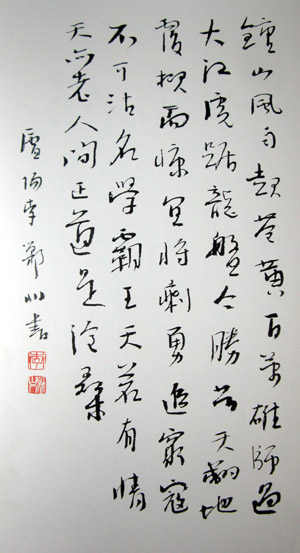 鐘山風雨起蒼黃百萬雄師過
大江虎踞龍盤今勝昔天翻地
覆慨而慷宜將剩勇追窮寇
不可沽名學霸王天若有情
天亦老人間正道是滄桑
李鄭書